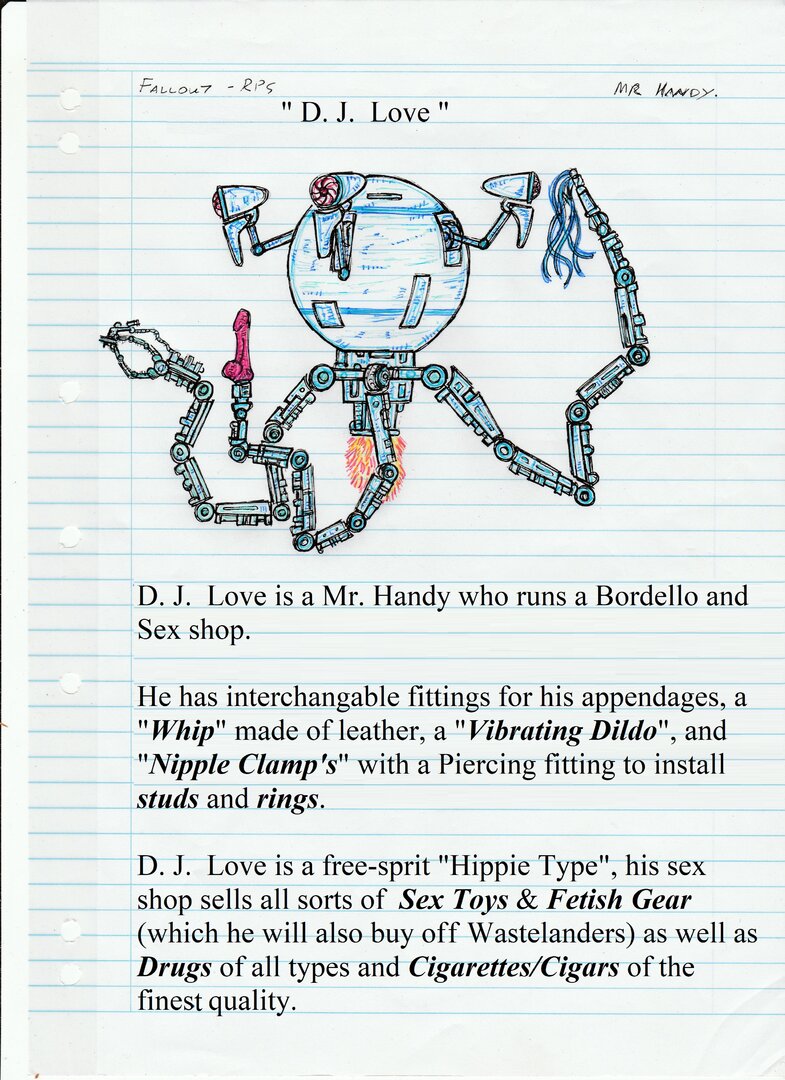 FALLOUT - RPG
MR HANDY.
" D. J. Love "
D. J. Love is a Mr. Handy who runs a Bordello and
Sex shop.
He has interchangable fittings for his appendages, a
"Whip" made of leather, a "Vibrating Dildo", and
"Nipple Clamp's" with a Piercing fitting to install
studs and rings.
D. J. Love is a free-sprit "Hippie Type", his sex
shop sells all sorts of Sex Toys & Fetish Gear
(which he will also buy off Wastelanders) as well as
Drugs of all types and Cigarettes/Cigars of the
finest quality.